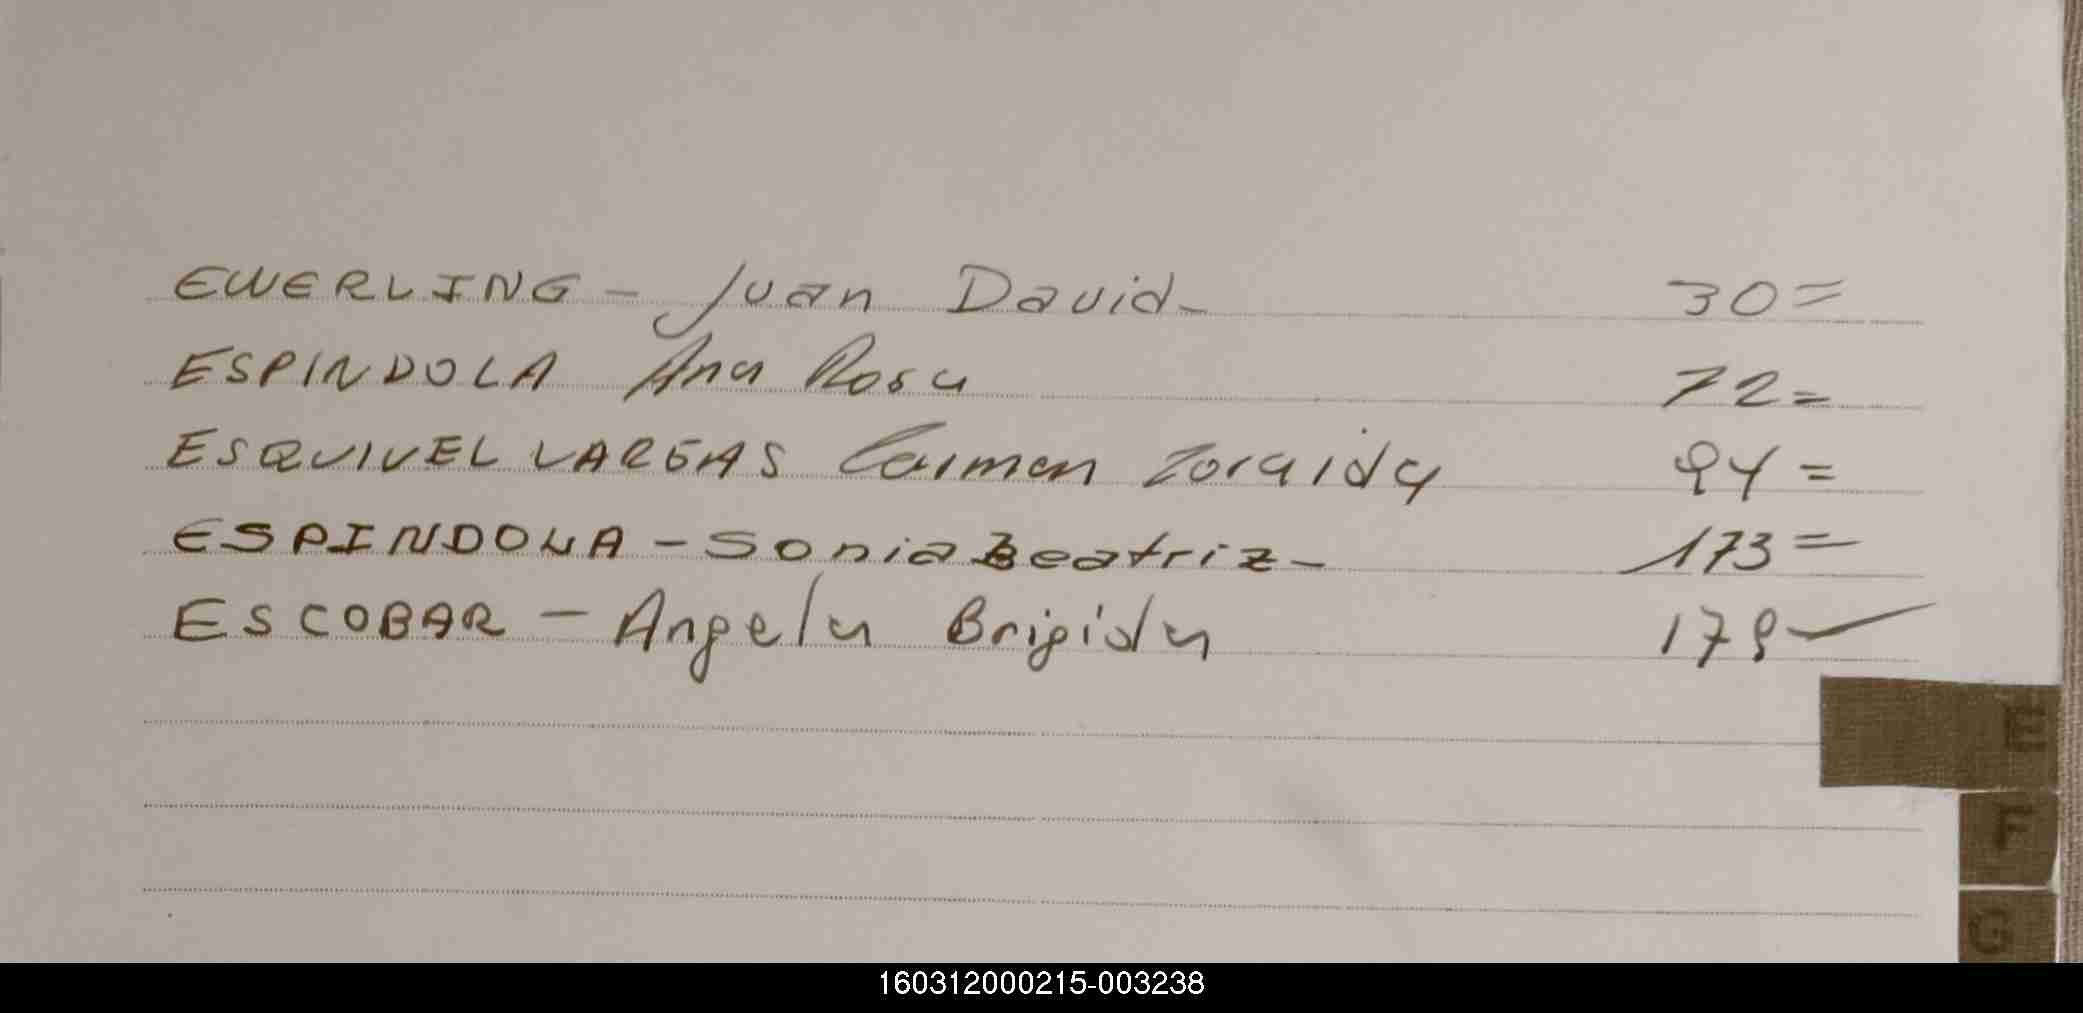 EWERLING - Juan David - 30=
ESPINDOLA Ana Rosa 72=
ESQUIVEL VARGAS Carmen Zoraida 94=
ESPINDOLA - Sonia Beatriz - 173=
ESCOBAR - Angela Brigida 179
E
F
G
160312000215-003238